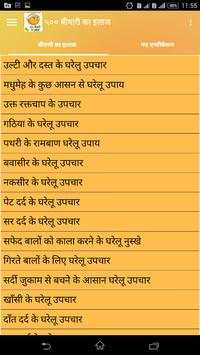 11:55
५०० बीमारी का इलाज
बीमारी का इलाज
नए एप्लीकेशन
उल्टी और दस्त के घरेलू उपचार
मधुमेह के कुछ आसन से घरेलू उपाय
उक्त रक्तचाप के उपचार
गठिया के घरेलू उपचार
पथरी के रामबाण घरेलू उपाय
बवासीर के घरेलू उपचार
नकसीर के घरेलू उपचार
पेट दर्द के घरेलू उपचार
सर दर्द के घरेलू उपचार
सफेद बालों को काला करने के घरेलू नुस्खे
गिरते बालों के लिए घरेलू उपचार
सर्दी जुकाम से बचने के आसान घरेलू उपचार
खाँसी के घरेलू उपचार
दाँत दर्द के घरेलू उपचार